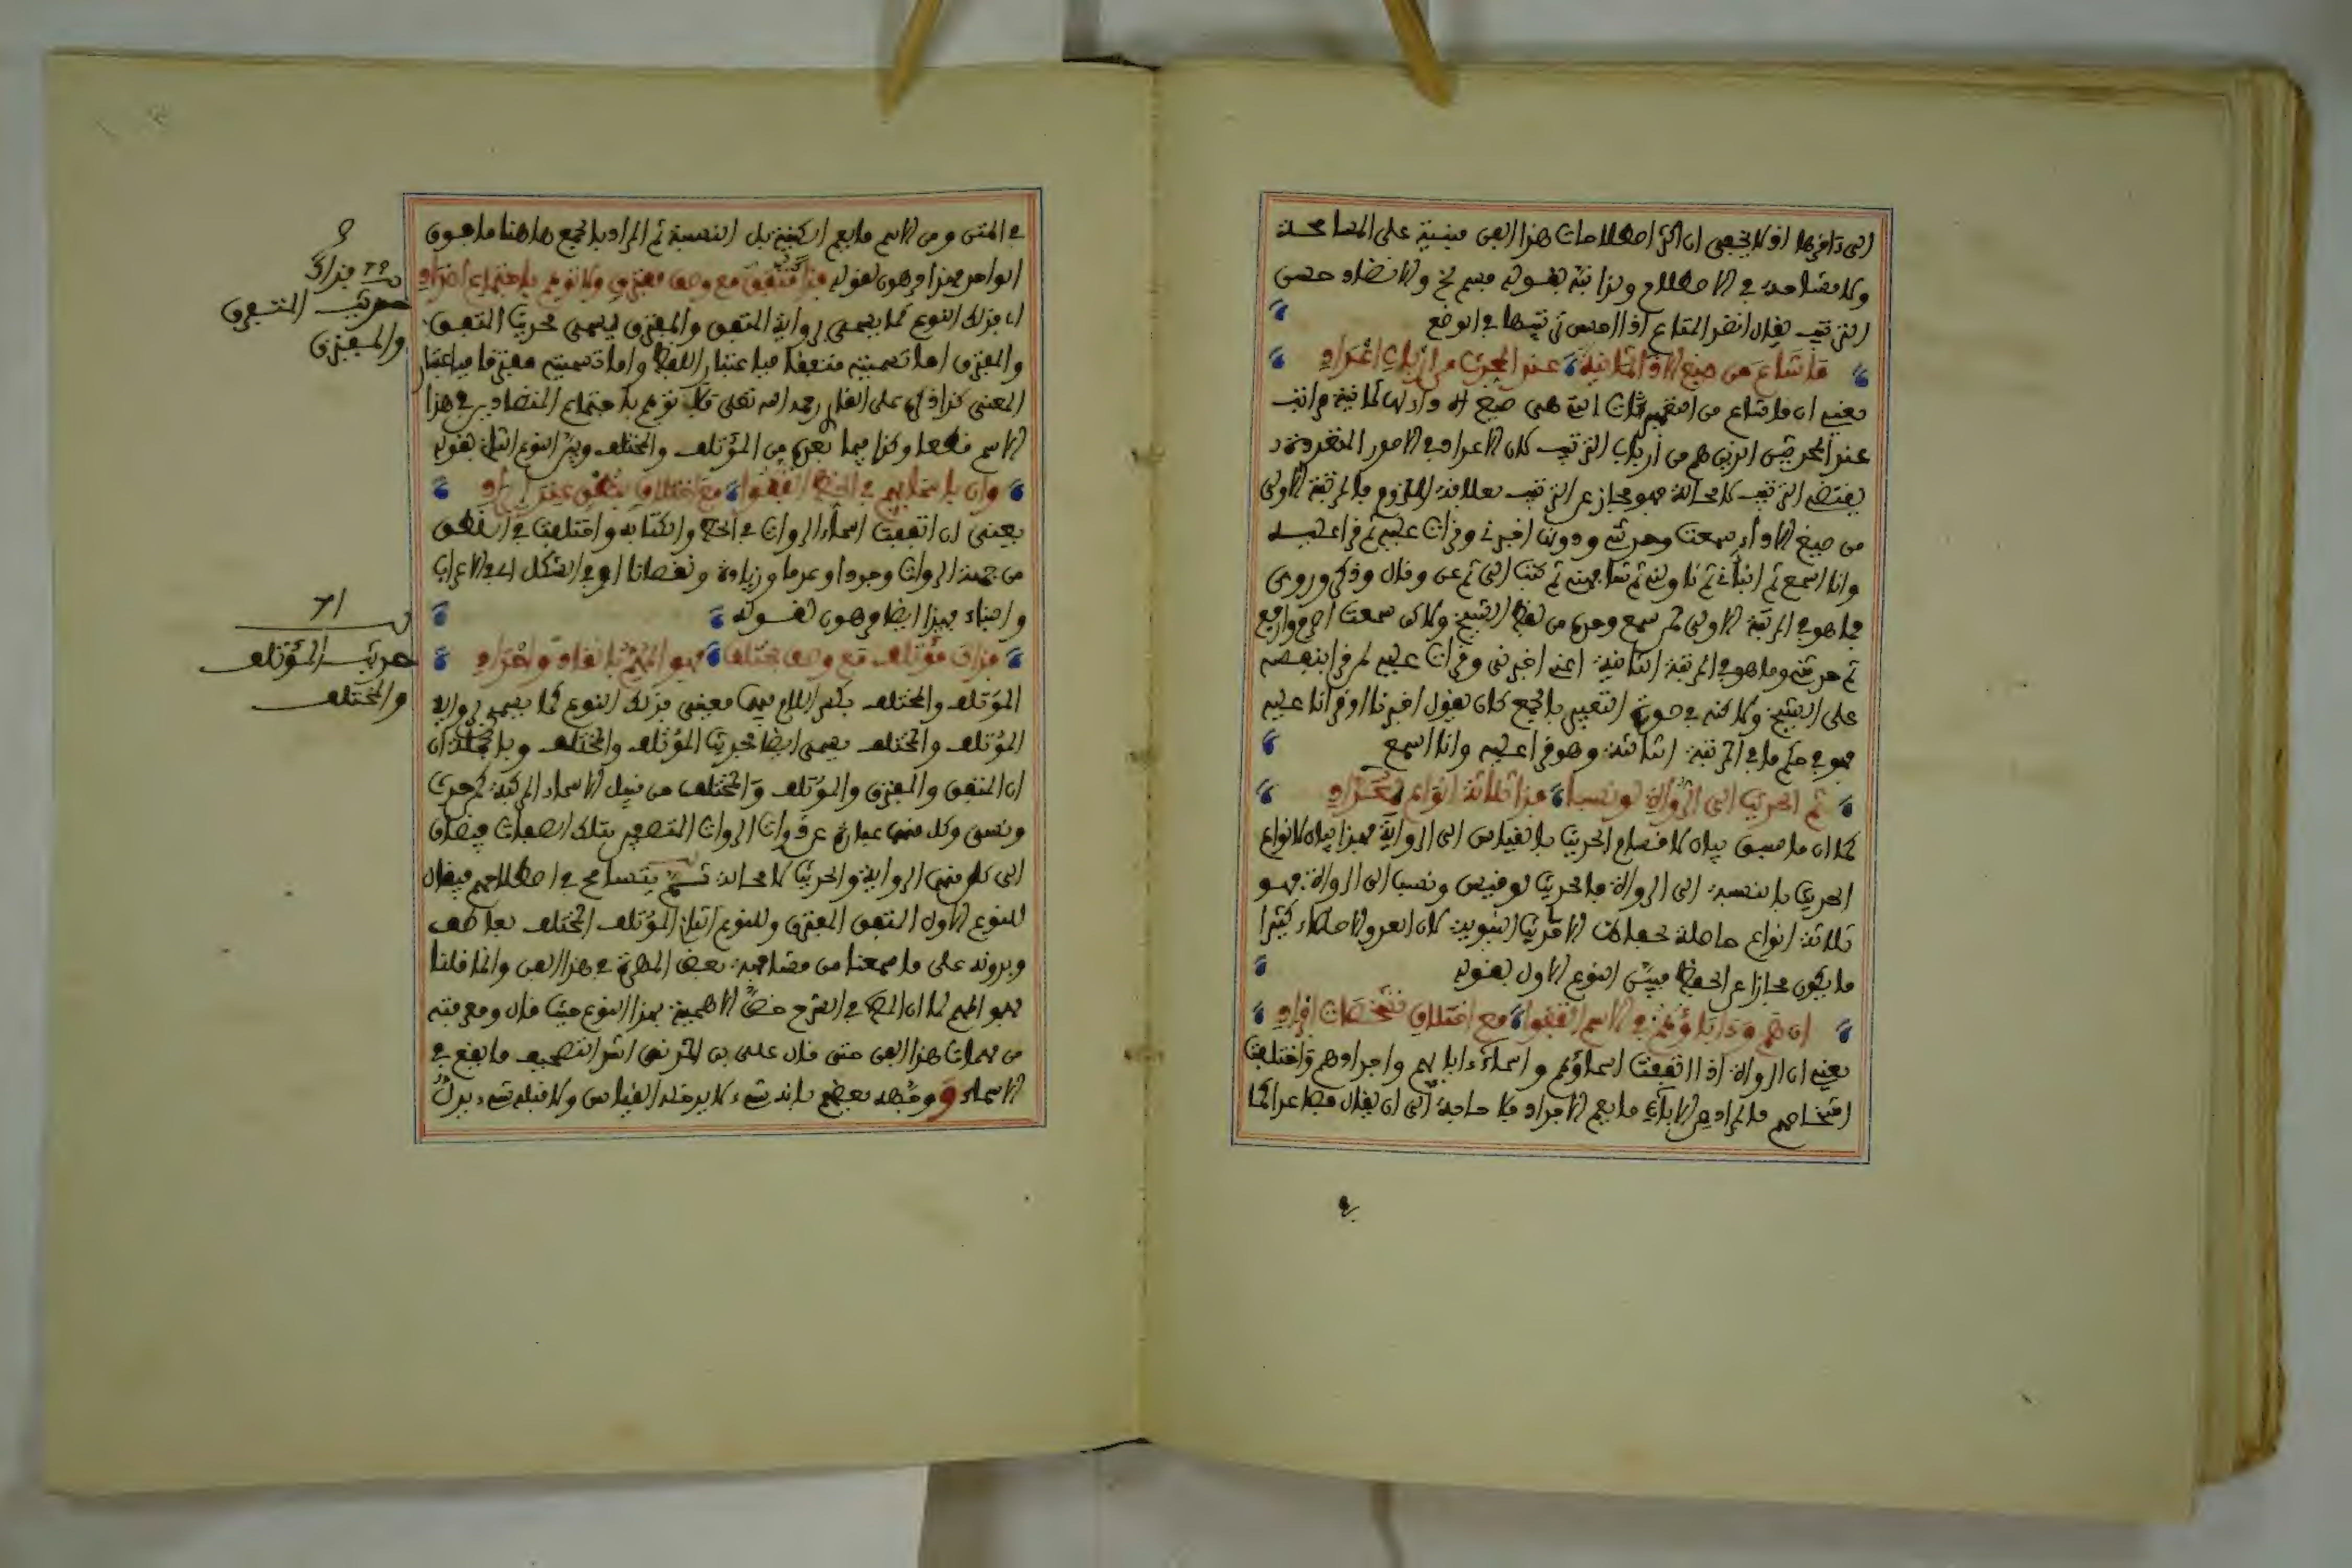 الى دافرها اذ لا يخفى ان اكثر اصطلاحات هذا الفن مبنية على المسامحة
ولا مشاحة في الاصطلاح
الترتيب يقال انضد المتاع اذا احسن ترتيبها في الوضع
ما شاع من صيغ الاداء ثمانية عند المحدث من ارباب اعداد
يعني ان ما شاع من التعبيرات التي هي صيغ الاداء لثمانية مراتب
عند المحدثين الذين هم من ارباب الترتيب كان الاعداد في الامور المتعددة
يقتضي الترتيب لا محالة فهو مجاز عن الترتيب بعلاقة اللزوم فالمرتبة الاولى
من صيغ الاداء سمعت وحدثني ودونها اخبرني وقرات عليه ثم قرا عليه
وانا اسمع ثم انباني ثم ناولني ثم شافهني ثم كتب الي ثم عن وقال وذكر وروى
فما هو في المرتبة الاولى لمن سمع وحده من لفظ الشيخ ولكن سمعت اصرح وارفع
ثم حدثني وما هو في المرتبة الثانية اعني اخبرني وقرات عليه لمن قرا بنفسه
على الشيخ ولكنه في صورة التعبير بالجمع كان يقول اخبرنا او قرانا عليه
فهو في حكم ما في المرتبة الثالثة وهو قرا عليه وانا اسمع
ثم الحديث الى الرواة لو نسبا فذا ثلاثة انواع
كما ان ما سبق بيان لاقسام الحديث بالقياس الى الرواية فهذا بيان لانواع
الحديث بالنسبة الى الرواة فالحديث لو قيس ونسب الى الرواة فهو
ثلاثة انواع حاصلة
ما يكون مجازا عن الحفظ فبين النوع الاول بقوله
ان هم وءاباؤهم في الاسم اتفقوا مع اختلاف شخصات افراد
يعني ان الرواة اذا اتفقت اسماؤهم واسماء ءابايهم واجدادهم واختلفت
اشخاصهم فالمراد من الاباء ما يعم الاجداد فلا حاجة الى ان يقال فصاعدا كما
في المتن ومن الاسم ما يعم الكنية بل النسبة ثم المراد بالجمع هاهنا ما فوق
الواحد فهذا وهون بقوله فذا متفق مع وصف مفترق ولا توهم باجتماع اضداد
ان ذلك النوع كما يسمى رواية المتفق والمفترق يسمى حديث المتفق
والمفترق اما تسميته متفقا فباعتبار اللفظ واما تسميته مفترقا فباعتبار
المعنى كذا ذكره على القاري رحمه الله تعلى فلا توهم باجتماع المتضادين في هذا
الاسم قطعا وكذا فيما بعده من المؤتلف والمختلف وبين النوع الثاني بقوله
وان باسمايهم في الخط اتفقوا مع اختلاف بنطق عند
يعني ان اتفقت اسماء الروات في الخط والكتابة واختلفت في النطق
من جهة الروات وجودا وعدما وزيادة ونقصانا او في الشكل اي الاعراب
والبناء فهذا ايضا وهون بقوله
فذاك مؤتلف مع وصف مختلف فهو المهم
المؤتلف والمختلف بكسر اللام فيهما معنى فذلك النوع كما يسمى رواية
المؤتلف والمختلف يسمى ايضا حديث المؤتلف والمختلف وبالجملة ان
ان المتفق والمفترق والمؤتلف والمختلف من قبيل الاسماء المركبة
وكل منهما عبارة عن ذوات الروات المتصفين بتلك الصفات فيضاف
الى كل منهما الرواية والحديث لا محالة ثم يتسامح في اصطلاحهم فيقال
للنوع الاول المتفق المفترق وللنوع الثاني المؤتلف المختلف بعاطف
وبدونه على ما سمعنا من مشافهة بعض المهرة في هذا الفن وانما قلنا
فهو المهم لما ان في الشرح خص الاهمية بهذا النوع حيث قال ومعرفته
من مهمات هذا الفن حتى قال على بن المديني اشد التصحيف ما يقع في
الاسماء ووجهه بعضهم بانه شيء لا يدخله القياس ولا قبله شيء يدل
فذاك
حديث المتفق
والمفترق
حديث المؤتلف
والمختلف